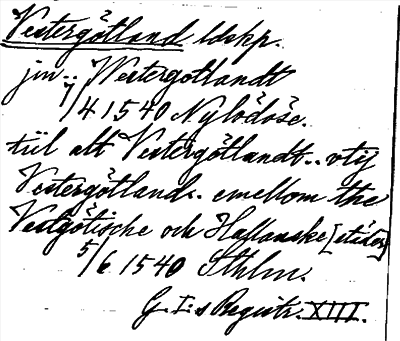 Vestergötland ldskp.
jn.. Westergotlandt
7/4 1540 Nylödöse.
till alt Vestergötlandt.. vtij
Vestergötland.. emellom the
Vestgötische och Hallanske [städer]
5/6 1540 Sthlm.
G. I:s Registr. XIII.